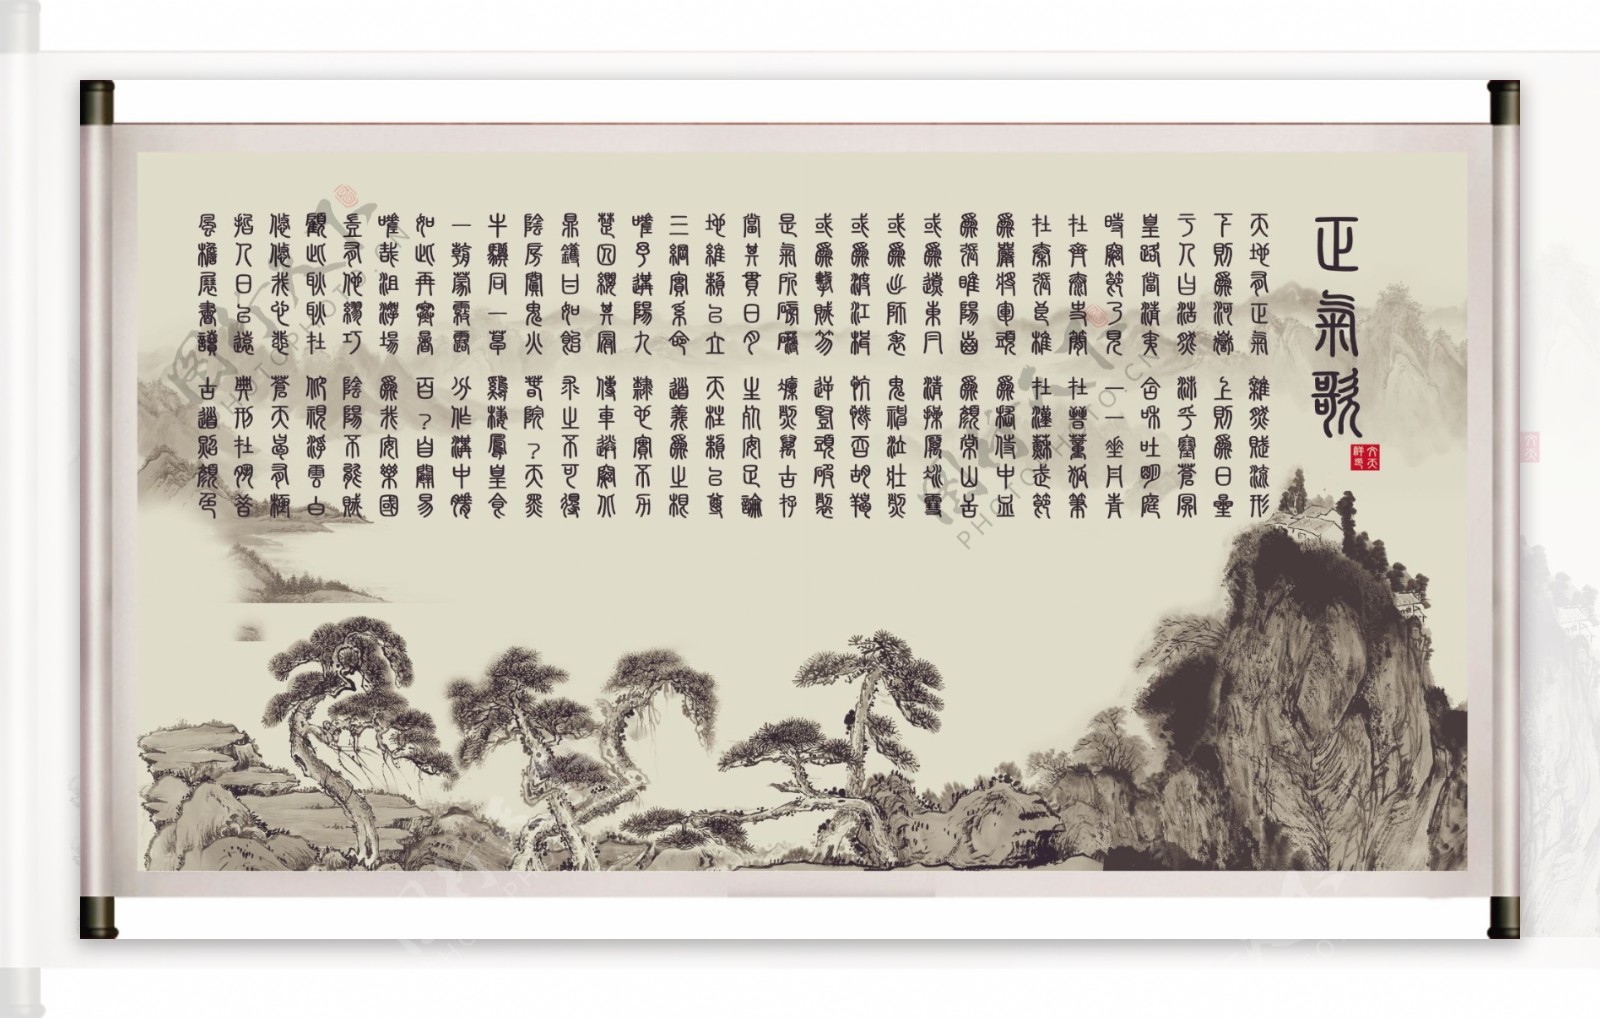 正氣歌
天地有正氣 雜然賦流形
下則爲河嶽 上則爲日星
於人曰浩然 沛乎塞蒼冥
皇路當清夷 含和吐明庭
時窮節乃見 一一垂丹青
在齊太史簡 在晉董狐筆
在秦張良椎 在漢蘇武節
爲嚴將軍頭 爲嵇侍中血
爲張睢陽齒 爲顏常山舌
或爲遼東帽 清操厲冰雪
或爲出師表 鬼神泣壯烈
或爲渡江楫 慷慨吞胡羯
或爲擊賊笏 逆豎頭破裂
是氣所磅礴 凜烈萬古存
當其貫日月 生死安足論
地維賴以立 天柱賴以尊
三綱實系命 道義爲之根
嗟予遘陽九 隸也實不力
楚囚纓其冠 傳車送窮北
鼎鑊甘如飴 求之不可得
陰房闃鬼火 春院?天黑
牛驥同一皂 雞棲鳳皇食
一朝蒙霧露 分作溝中瘠
如此再寒暑 百?自辟易
嗟哉沮洳場 爲我安樂國
豈有他繆巧 陰陽不能賊
顧此耿耿在 仰視浮雲白
悠悠我心悲 蒼天曷有極
哲人日已遠 典刑在夙昔
風檐展書讀 古道照顏色